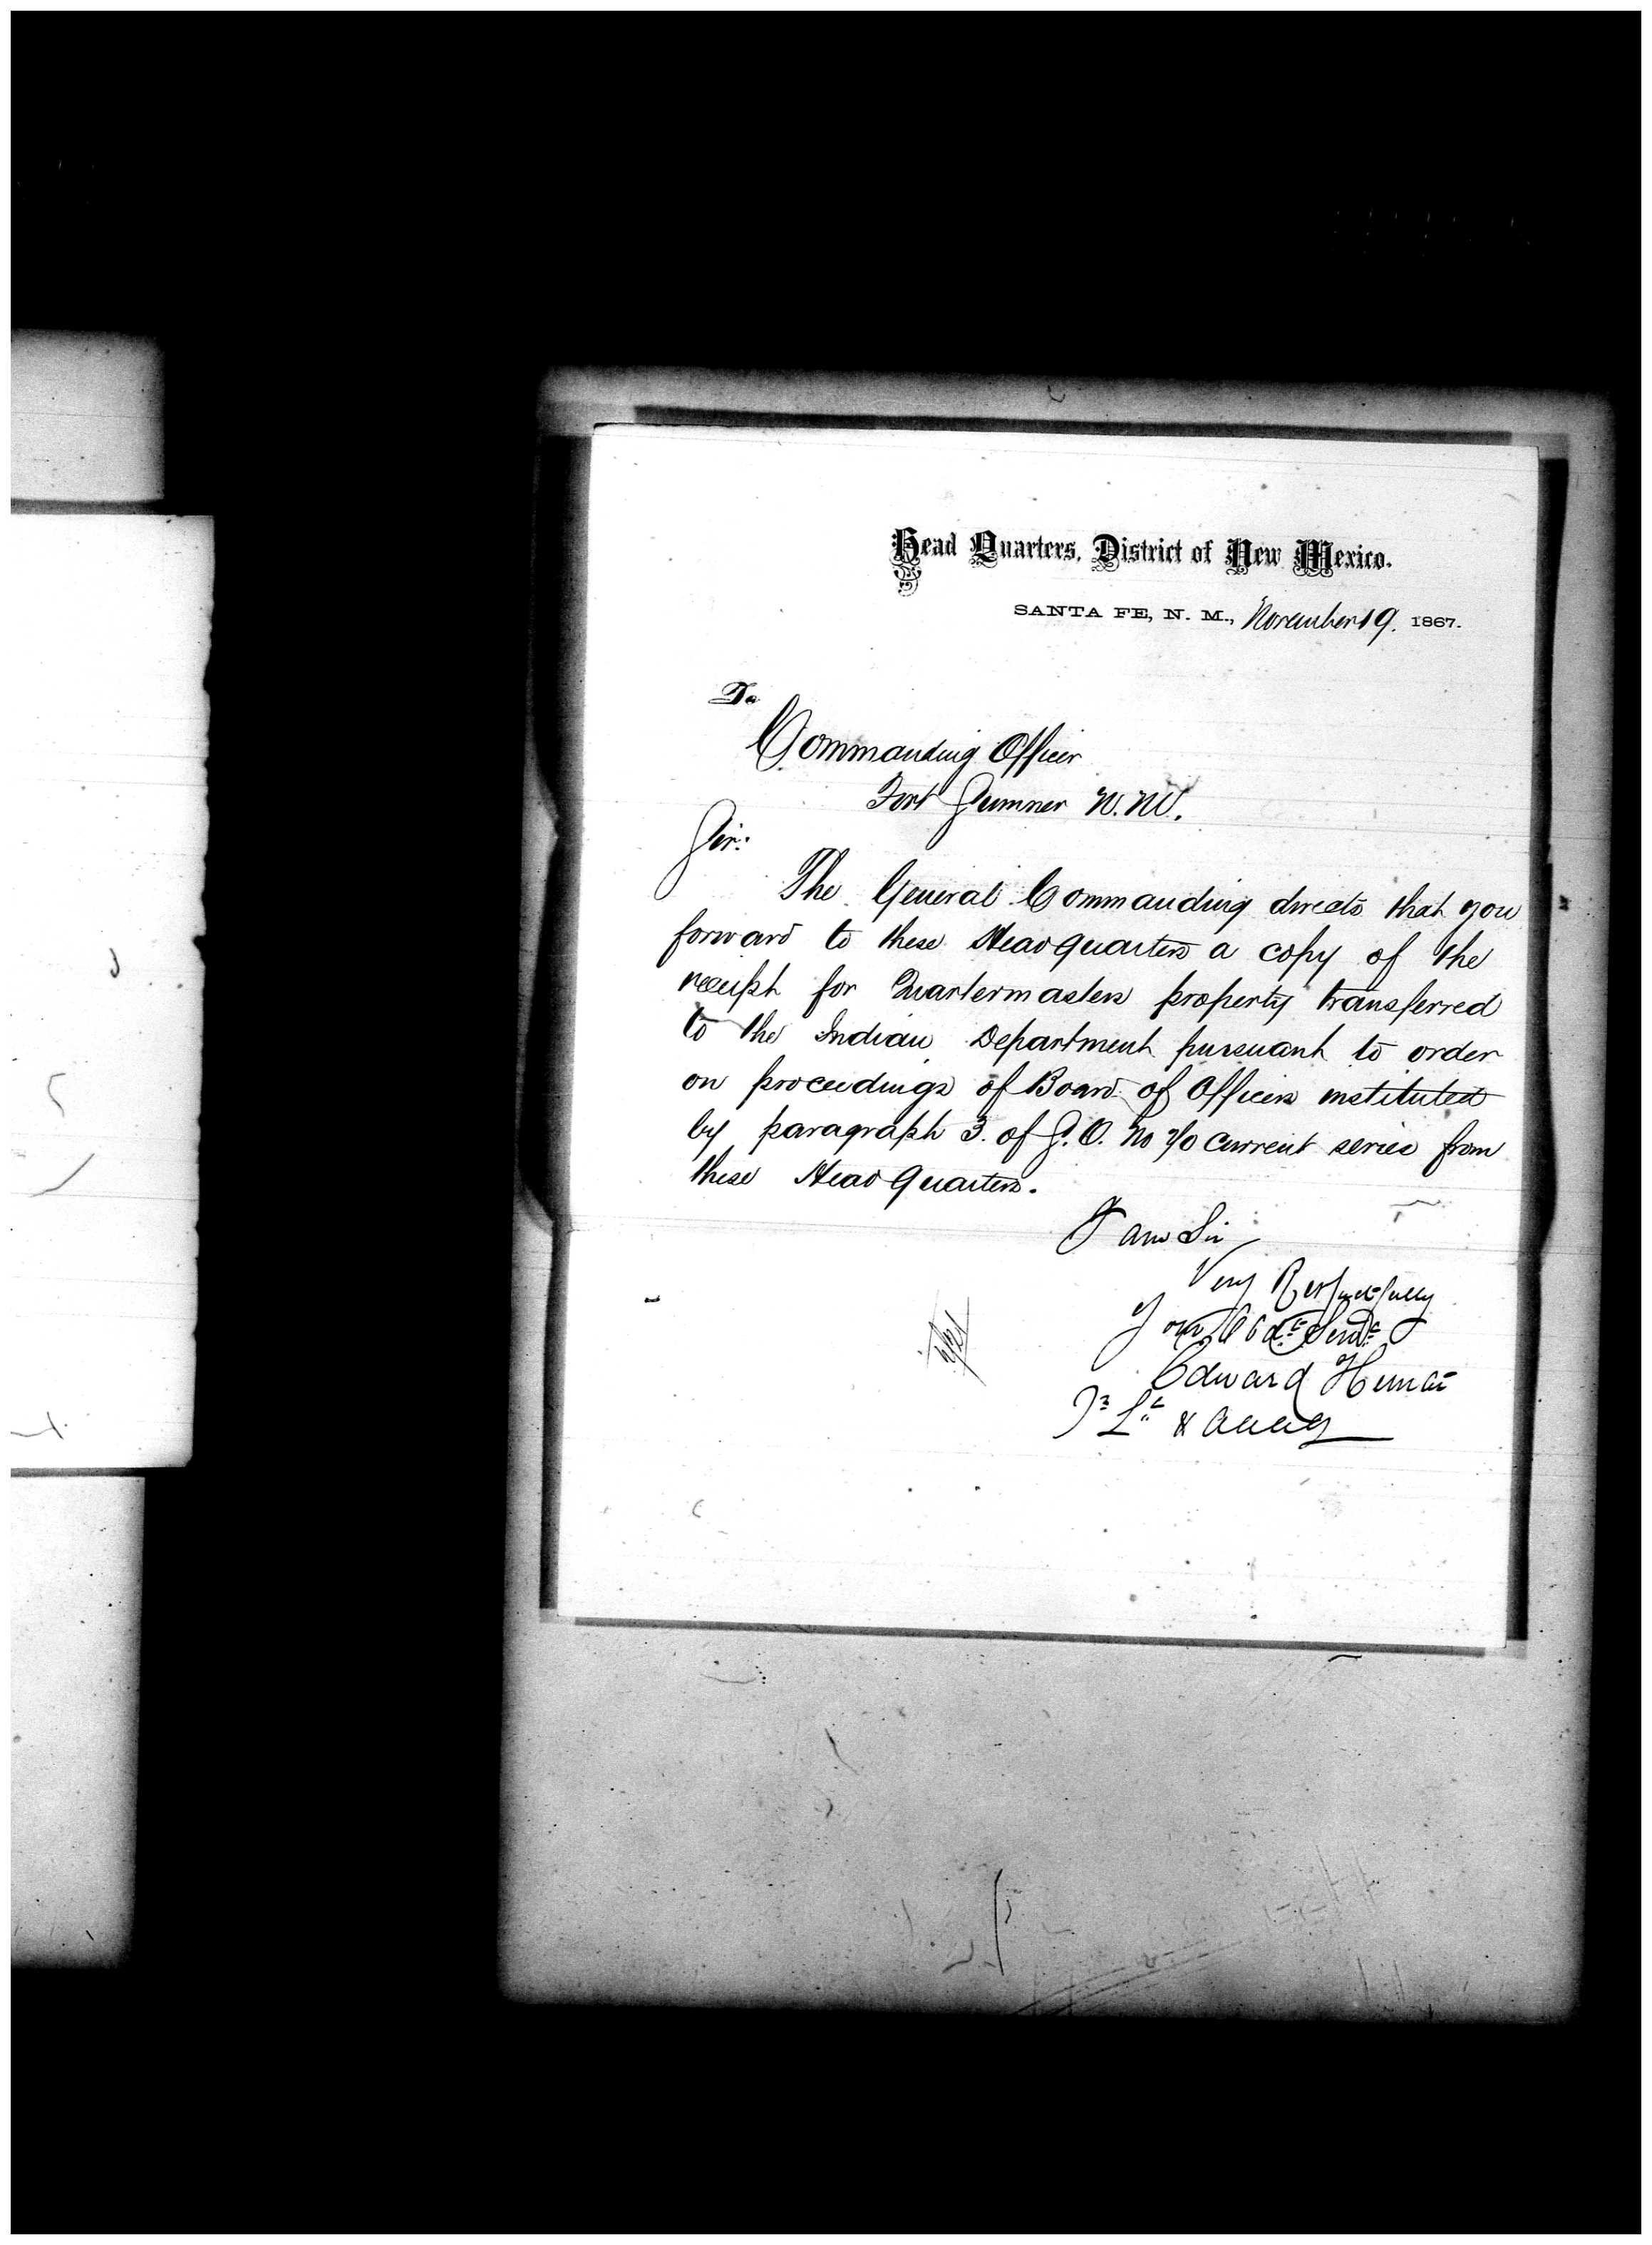 Head Quarters, District of New Mexico.
SANTA FE, N. M., November 19. 1867.
To
Commanding Officer
Fort Sumner N. M.
Sir:
The General Commanding directs that you
forward to these Head quarters a copy of the
receipt for Quartermasters property transferred
to the Indian Department pursuant to order
on proceedings of Board of Officers instituted
by paragraph 3. of S. O. No 70 current series from
these Head Quarters.
I am Sir
Very Respectfully
Your Obdt Servt
Edward Hunter